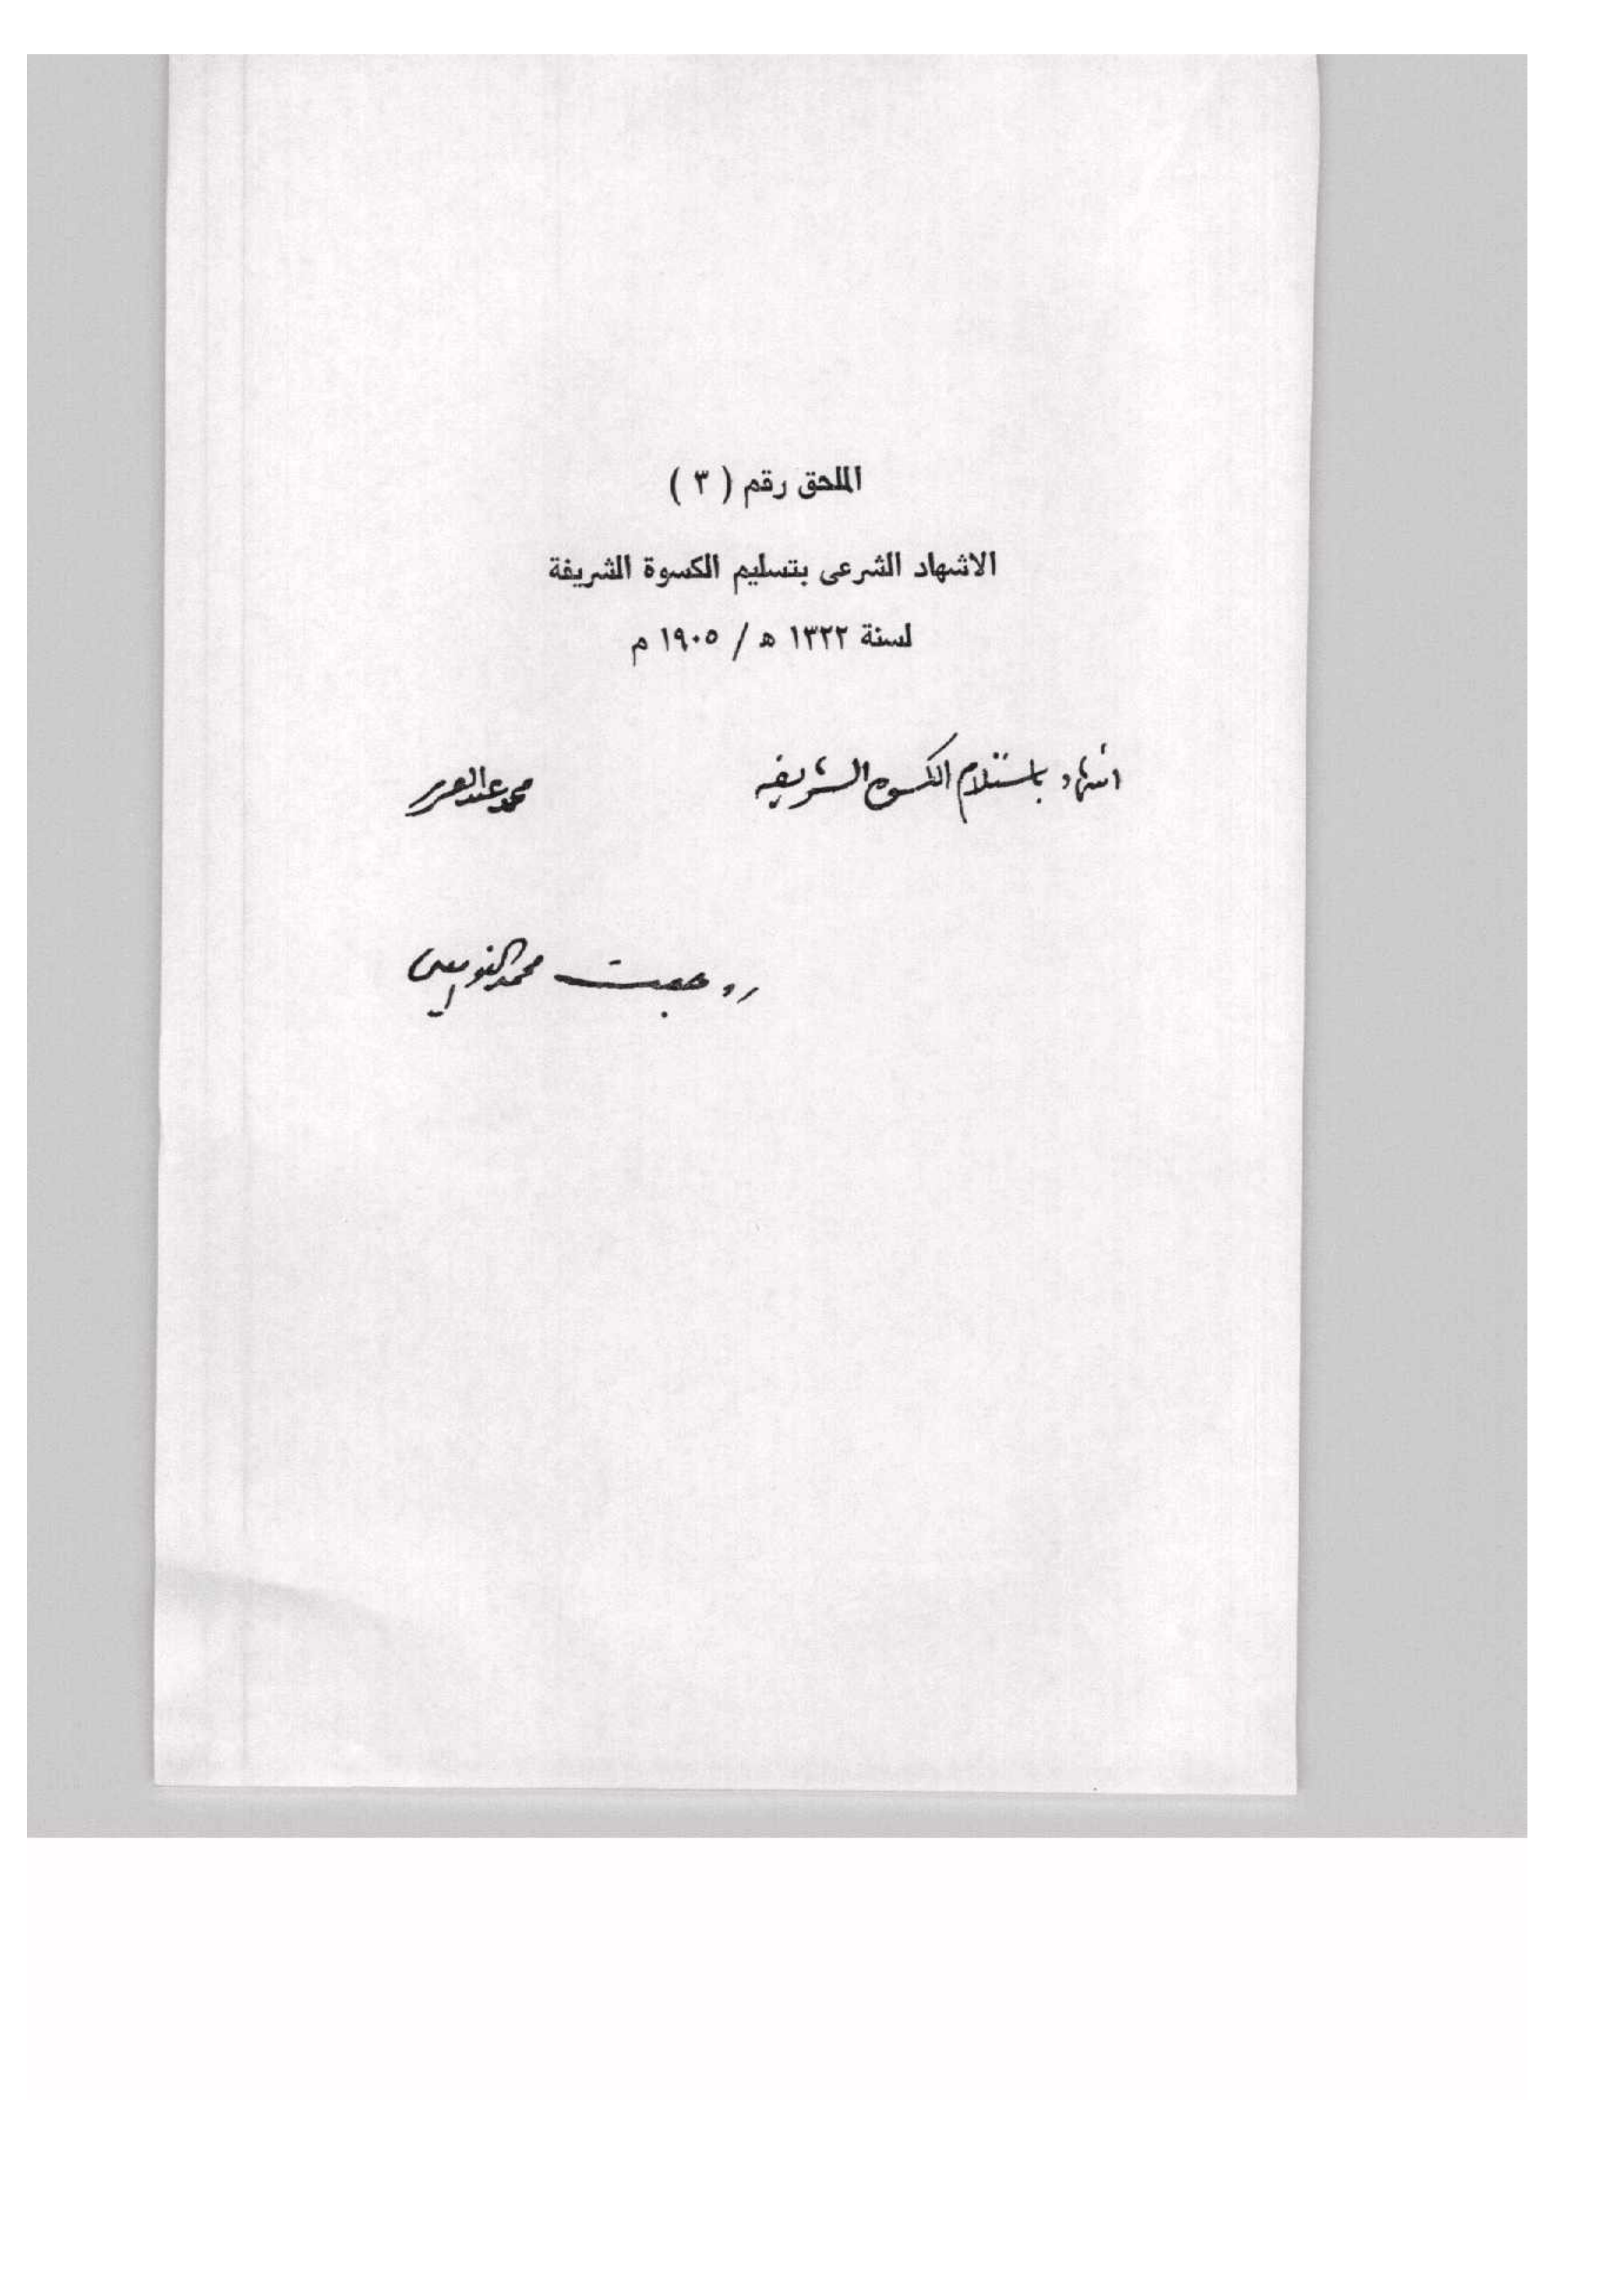 الملحق رقم ( ٣ )
الاشهاد الشرعى بتسليم الكسوة الشريفة
لسنة ١٣٢٢ ه / ١٩٠٥ م
اشهاد باستلام الكسوه الشريفه محمد عبد العزيز
محمد